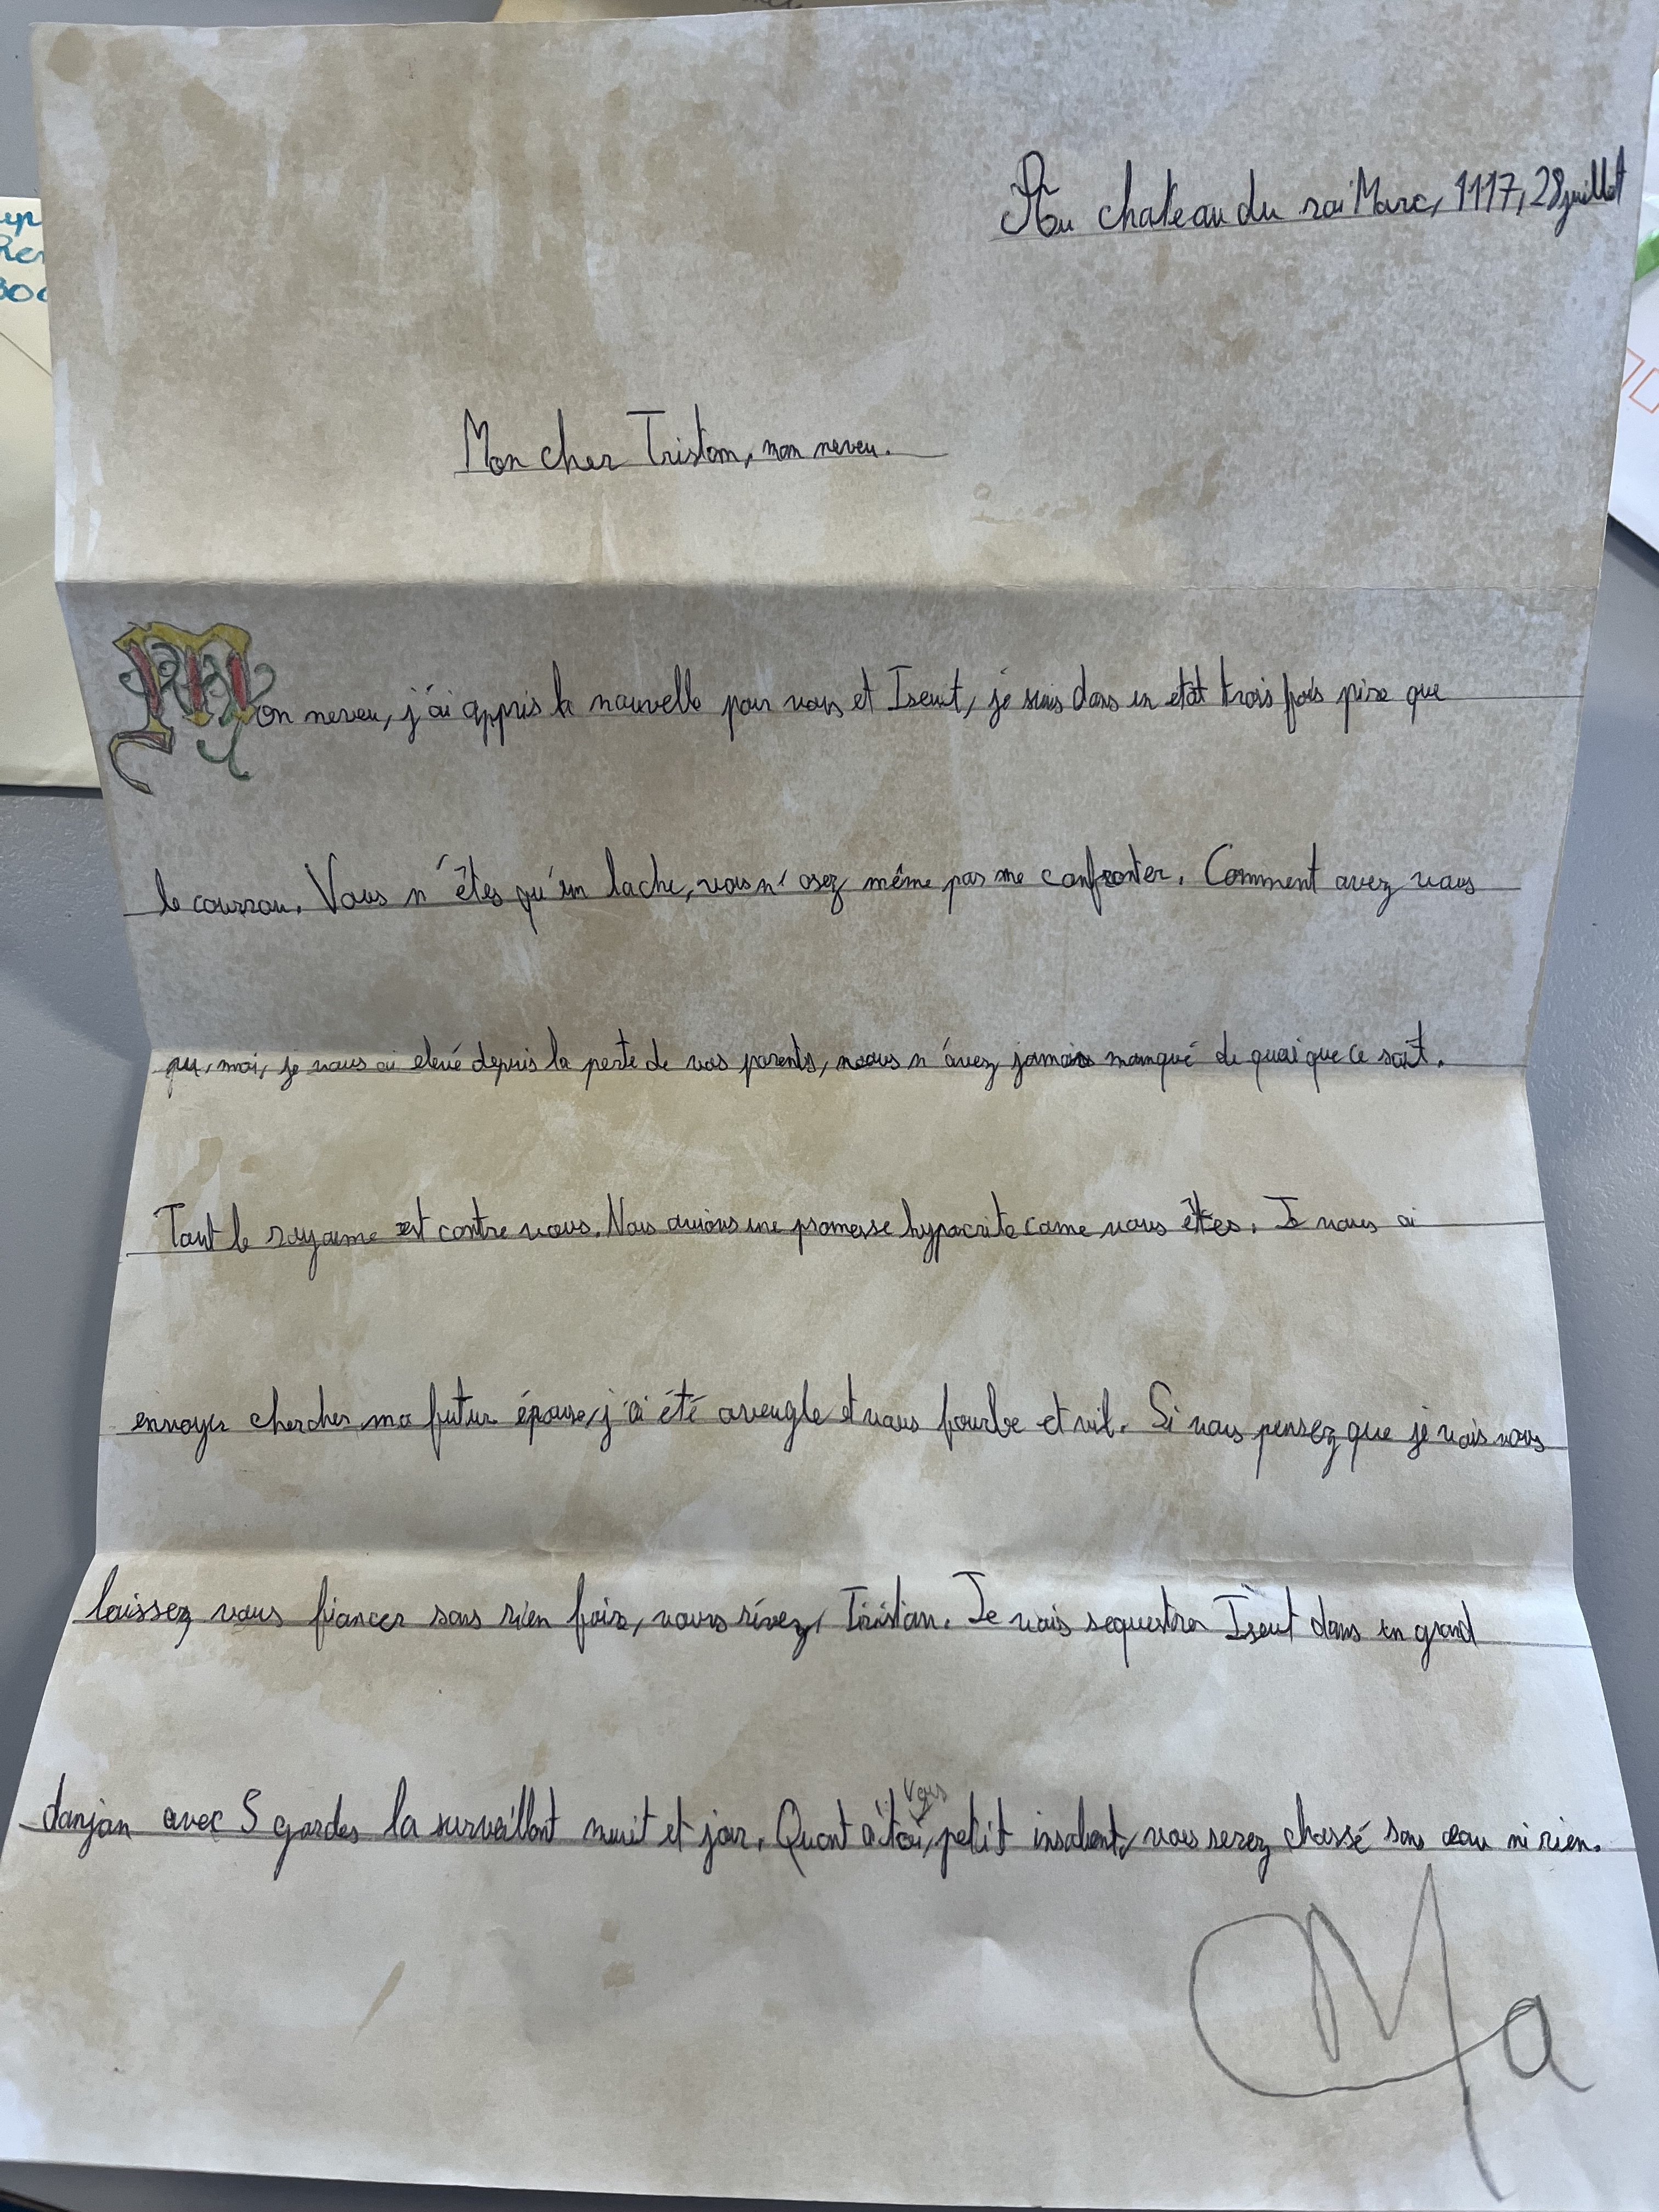 Au chateau du roi Marc, 1117, 28 juillet
Mon cher Tristan, mon neveu.
Mon neveu, j'ai appris la nouvelle pour vous et Iseut, je suis dans un etat trois fois pire que
le courrou. Vous n'êtes qu'un lache, vous n'osez même pas me confronter. Comment avez vous
pu, moi, je vous ai elevé depuis la perte de vos parents, vous n'avez jamais manqué de quoi que ce soit.
Tout le royaume est contre vous. Nous avions une promesse hypocrite come vous êtes. Je vous ai
envoyer chercher ma futur épouse, j'ai été aveugle et vous fourbe et vil. Si vous pensez que je vais vous
laissez vous fiancer sans rien faire, vous rêvez, Tristan. Je vais sequestrer Iseut dans un grand
donjon avec 5 gardes la surveillant nuit et jour. Quant à toi, vous petit insolent, vous serez chassé sans eau ni rien.
Ma